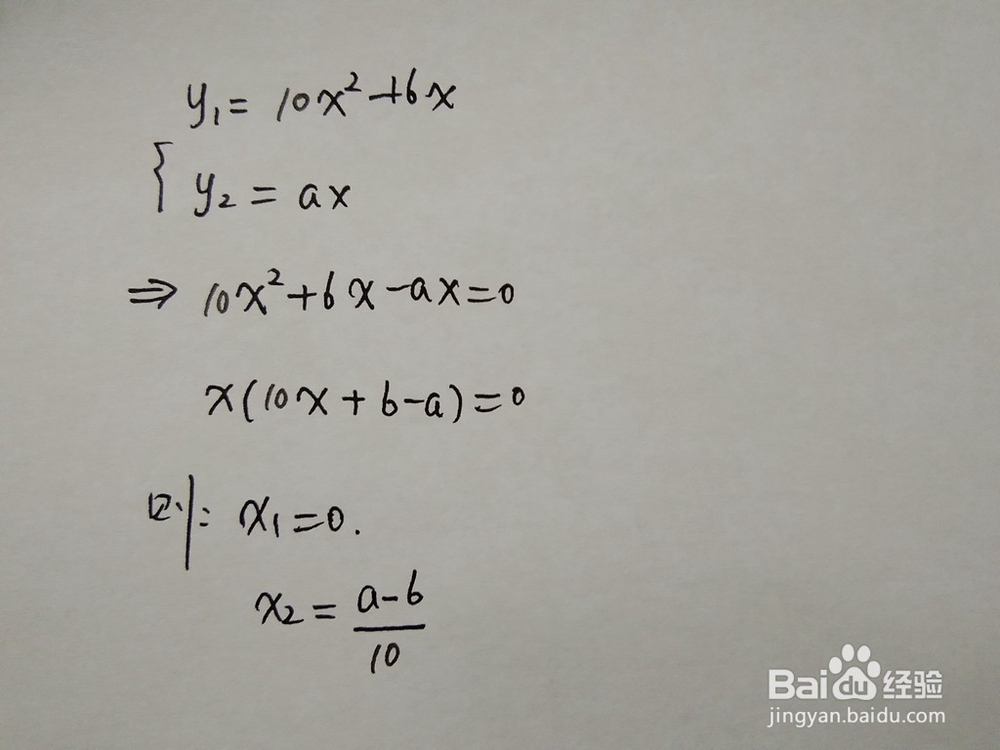 y₁ = 10x² + 6x
{ y₂ = ax
⇒ 10x² + 6x - ax = 0
x(10x + 6 - a) = 0
则: x₁ = 0.
x₂ = (a - 6) / 10
Baidu 经验
jingyan.baidu.com